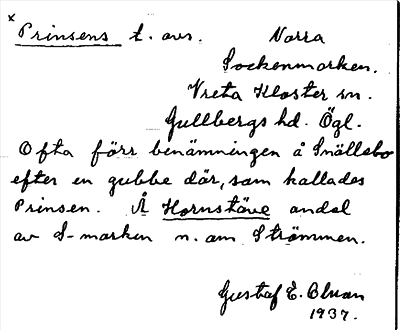 x Prinsens t. avs. Norra
Sockenmarken.
Vreta Kloster sn.
Gullbergs hd. Ögl.
Ofta förr benämningen å Snällebo
efter en gubbe där, som kallades
Prinsen. Å Hornstäve andel
av S-marken n. om Strömmen.
Gustaf E. Bluan
1937.